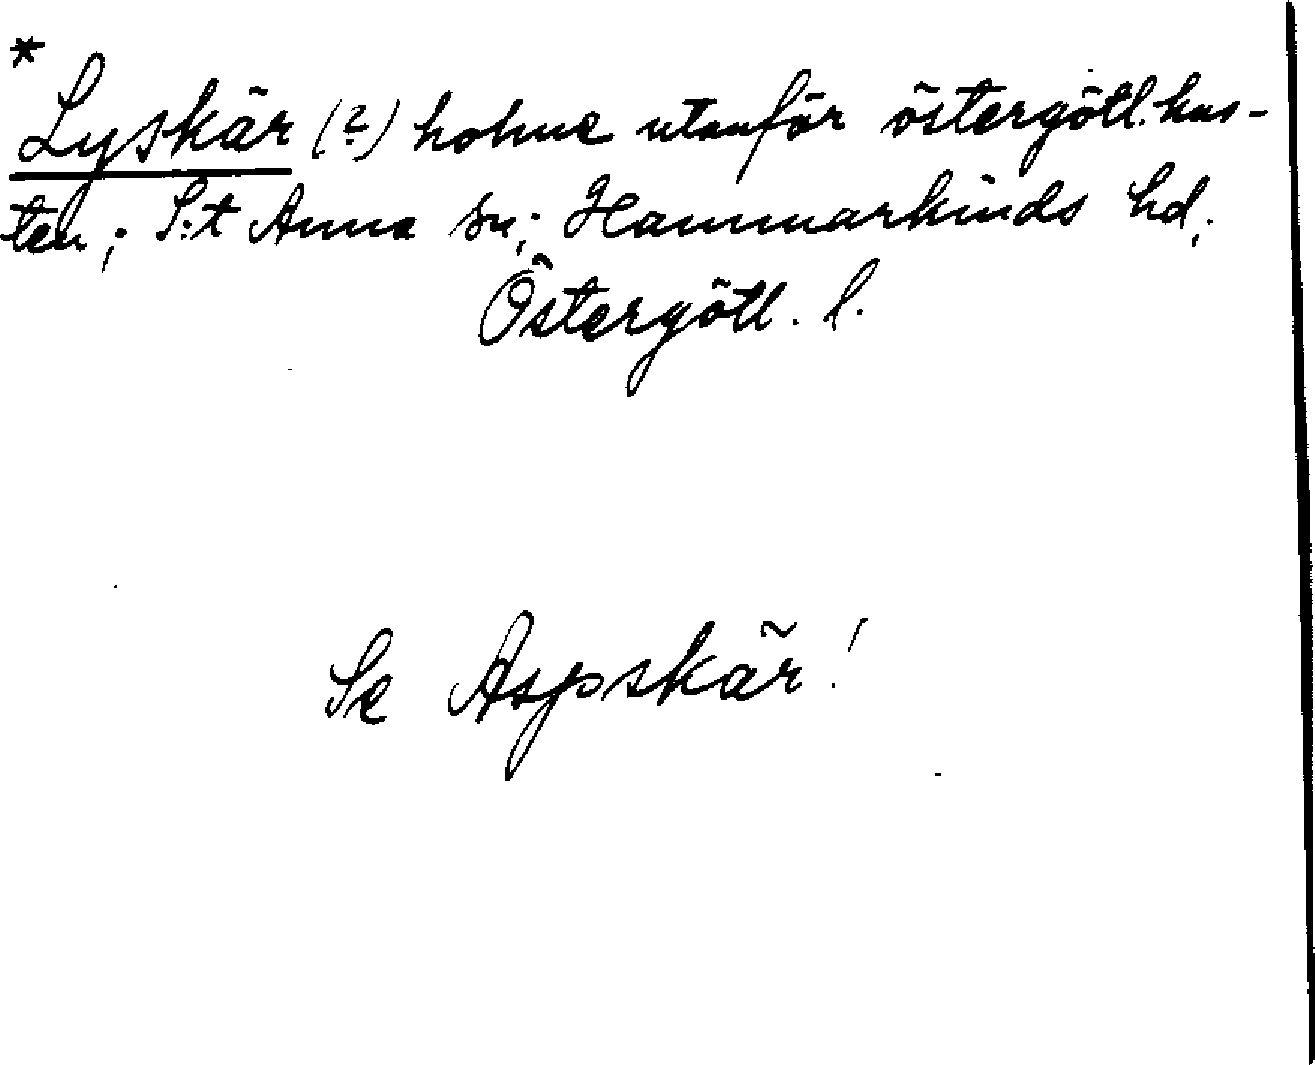 *
Lyskär (?) holme utanför östergötl. kus-
ten; S:t Anna sn; Hammarkinds hd;
Östergötl. l.
Se Aspskär!